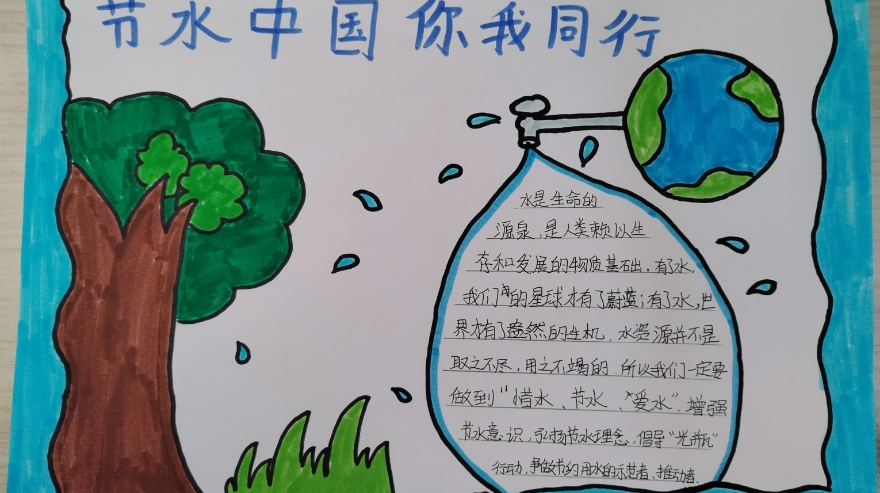 节水中国 你我同行
水是生命的
源泉,是人类赖以生
存和发展的物质基础,有了水,
我们的星球才有了蔚蓝;有了水,世
界才有了盎然的生机,水资源并不是
取之不尽,用之不竭的,所以我们一定要
做到“惜水、节水、“爱水”,增强
节水意识,弘扬节水理念,倡导“光瓶”
行动,争做节约用水的示范者、推动者.